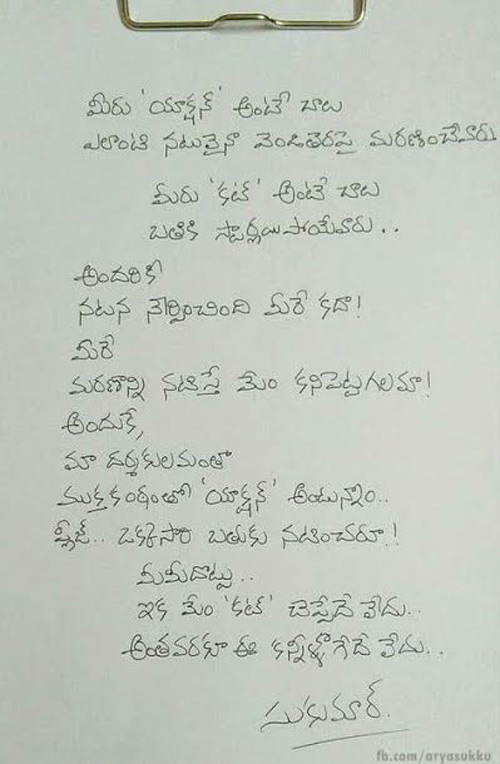 మీరు 'యాక్షన్' అంటే చాలు
ఎలాంటి నటులైనా వెండితెరపై మరణించేవారు
మీరు 'కట్' అంటే చాలు
బతికి స్టార్లయిపోయేవారు..
అందరికీ
నటన నేర్పించింది మీరే కదా!
మీరే
మరణాన్ని నటిస్తే మేం కనిపెట్టగలమా!
అందుకే,
మా దర్శకులమంతా
ముక్తకంఠంతో 'యాక్షన్' అంటున్నాం..
ప్లీజ్.. ఒక్కసారి బతుకు నటించరూ.!
మీమీదొట్టు..
ఇక మేం 'కట్' చెప్పేదే లేదు..
అంతవరకూ ఈ కన్నీళ్ళాగేదే లేదు..
సుకుమార్.
fb.com/aryasukku